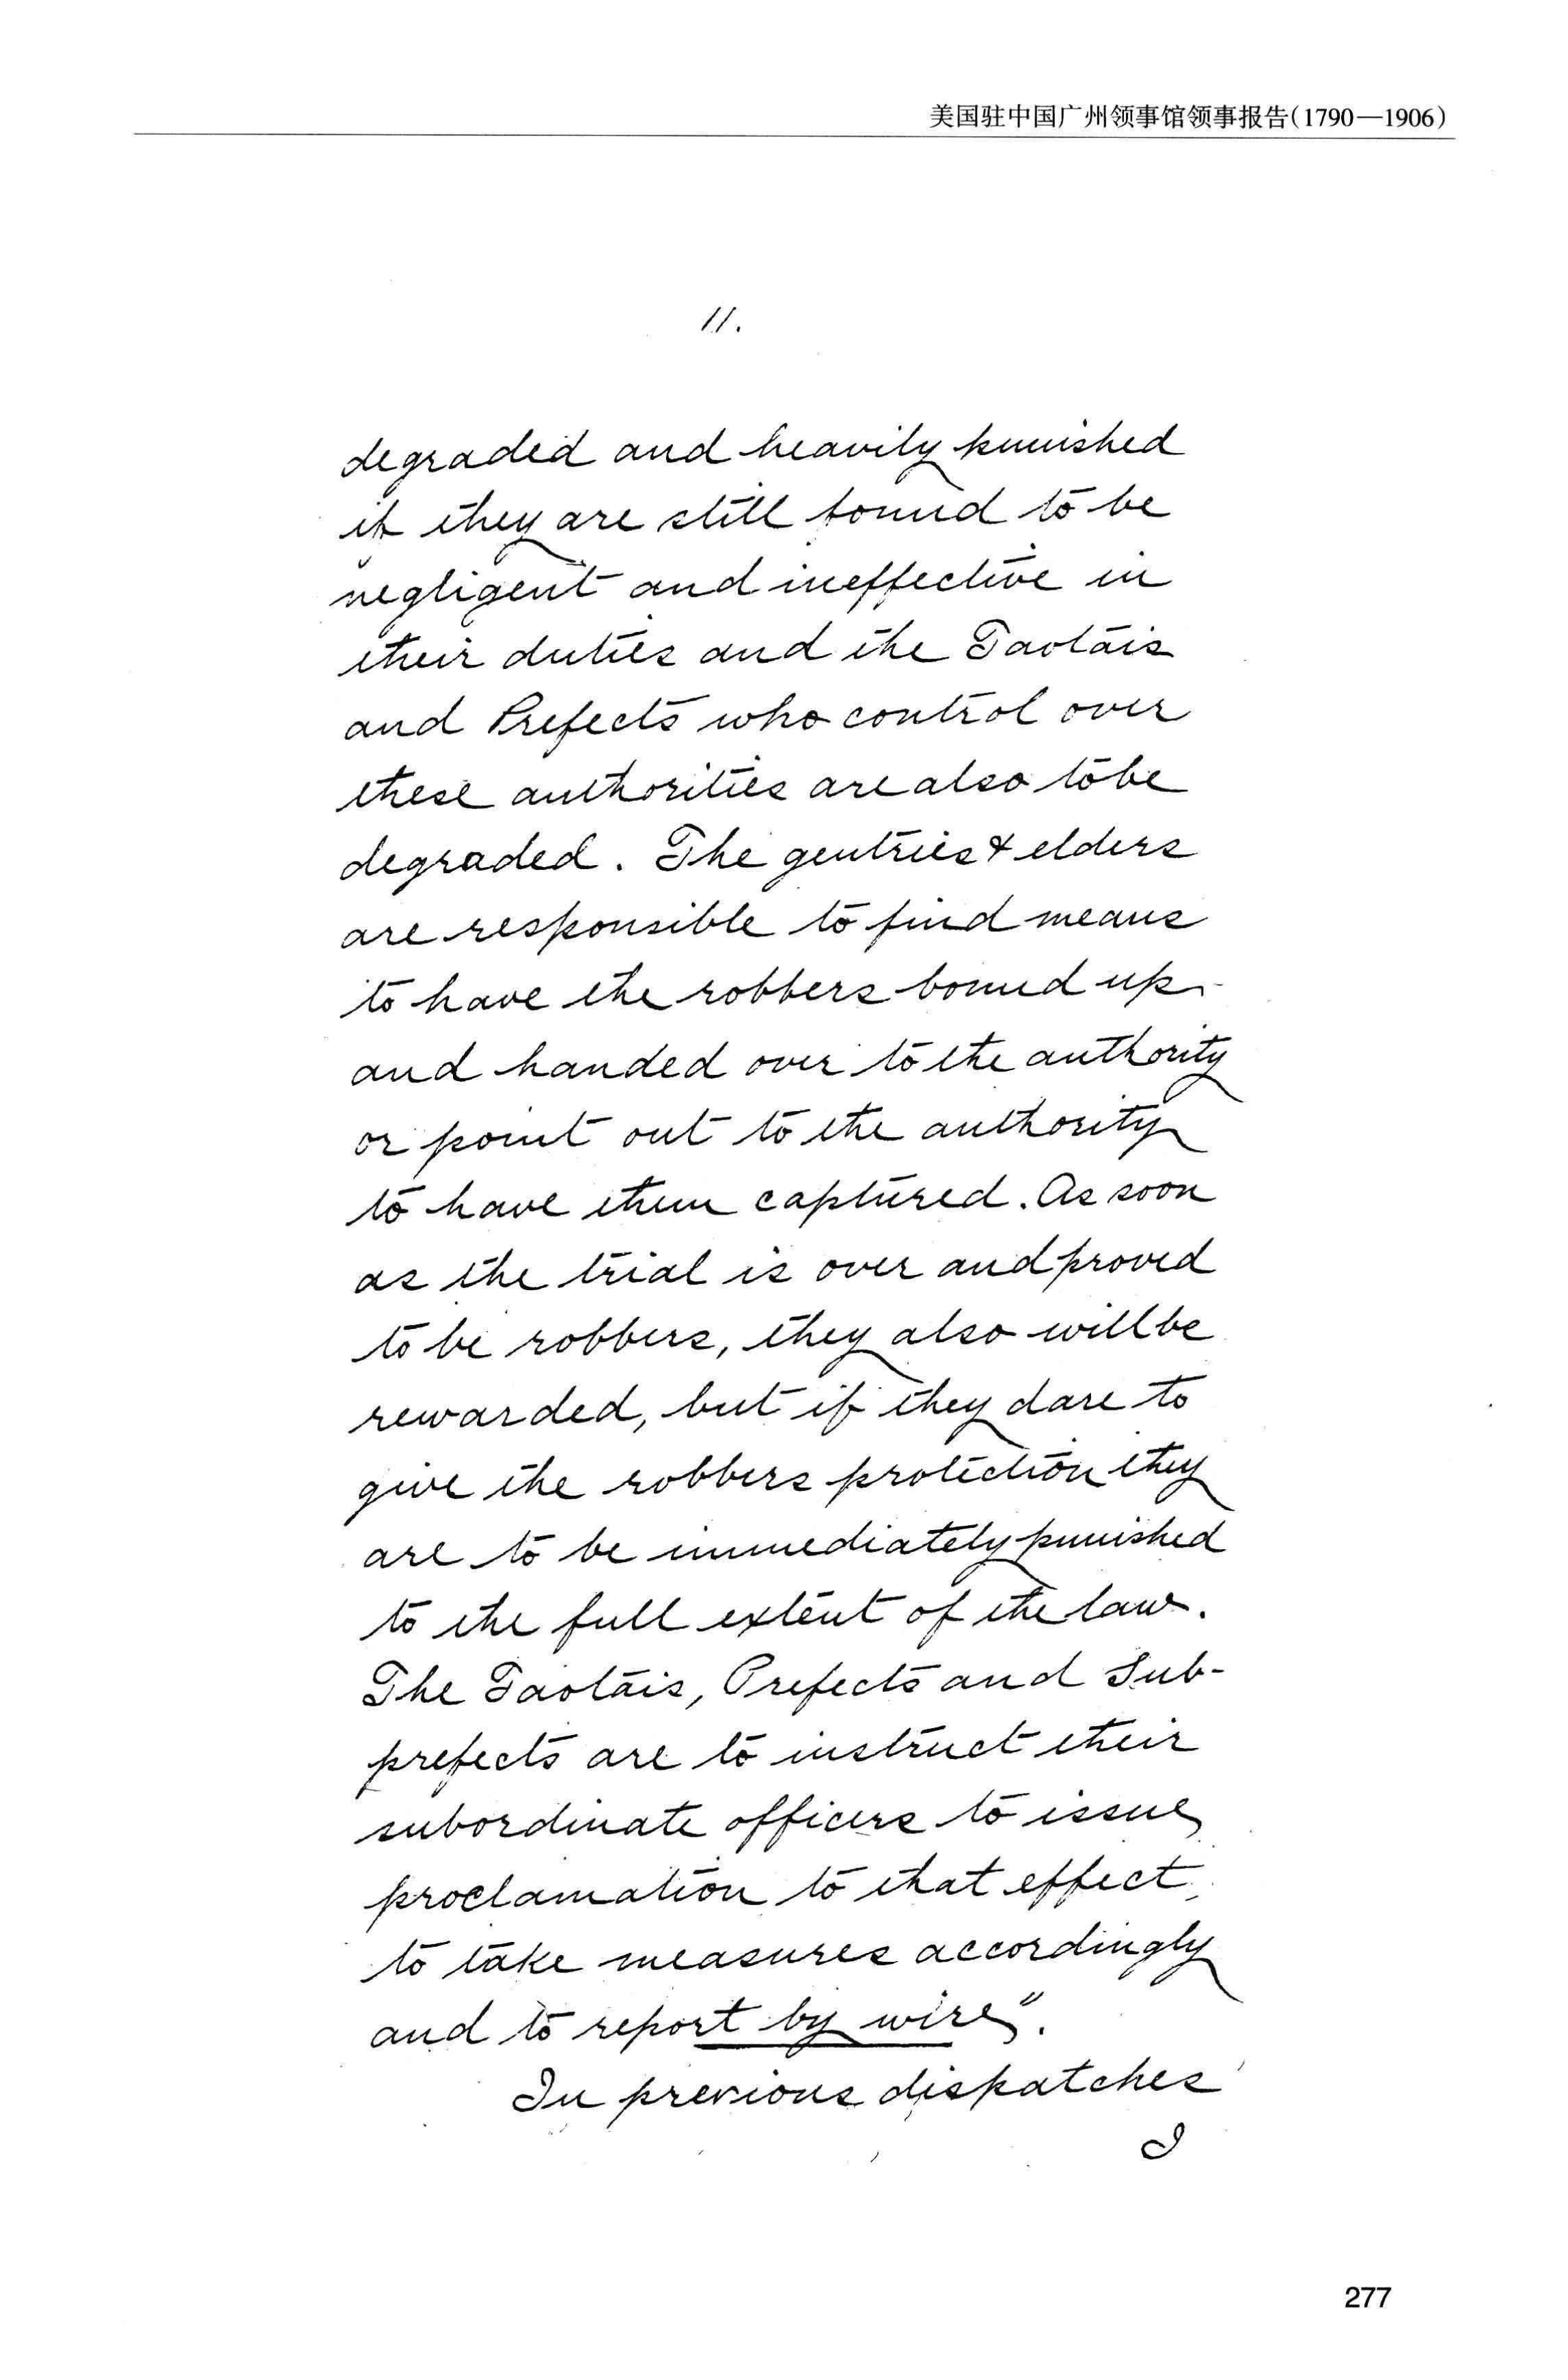 美国驻中国广州领事馆领事报告(1790—1906)
11.
degraded and heavily punished
if they are still found to be
negligent and ineffective in
their duties and the Taotais
and Prefects who control over
these authorities are also to be
degraded. The gentries & elders
are responsible to find means
to have the robbers bound up
and handed over to the authority
or point out to the authority
to have them captured. As soon
as the trial is over and proved
to be robbers, they also will be
rewarded, but if they dare to
give the robbers protection they
are to be immediately punished
to the full extent of the law.
The Taotais, Prefects and Sub-
prefects are to instruct their
subordinate officers to issue
proclamation to that effect,
to take measures accordingly
and to report by wire".
In previous dispatches
I
277